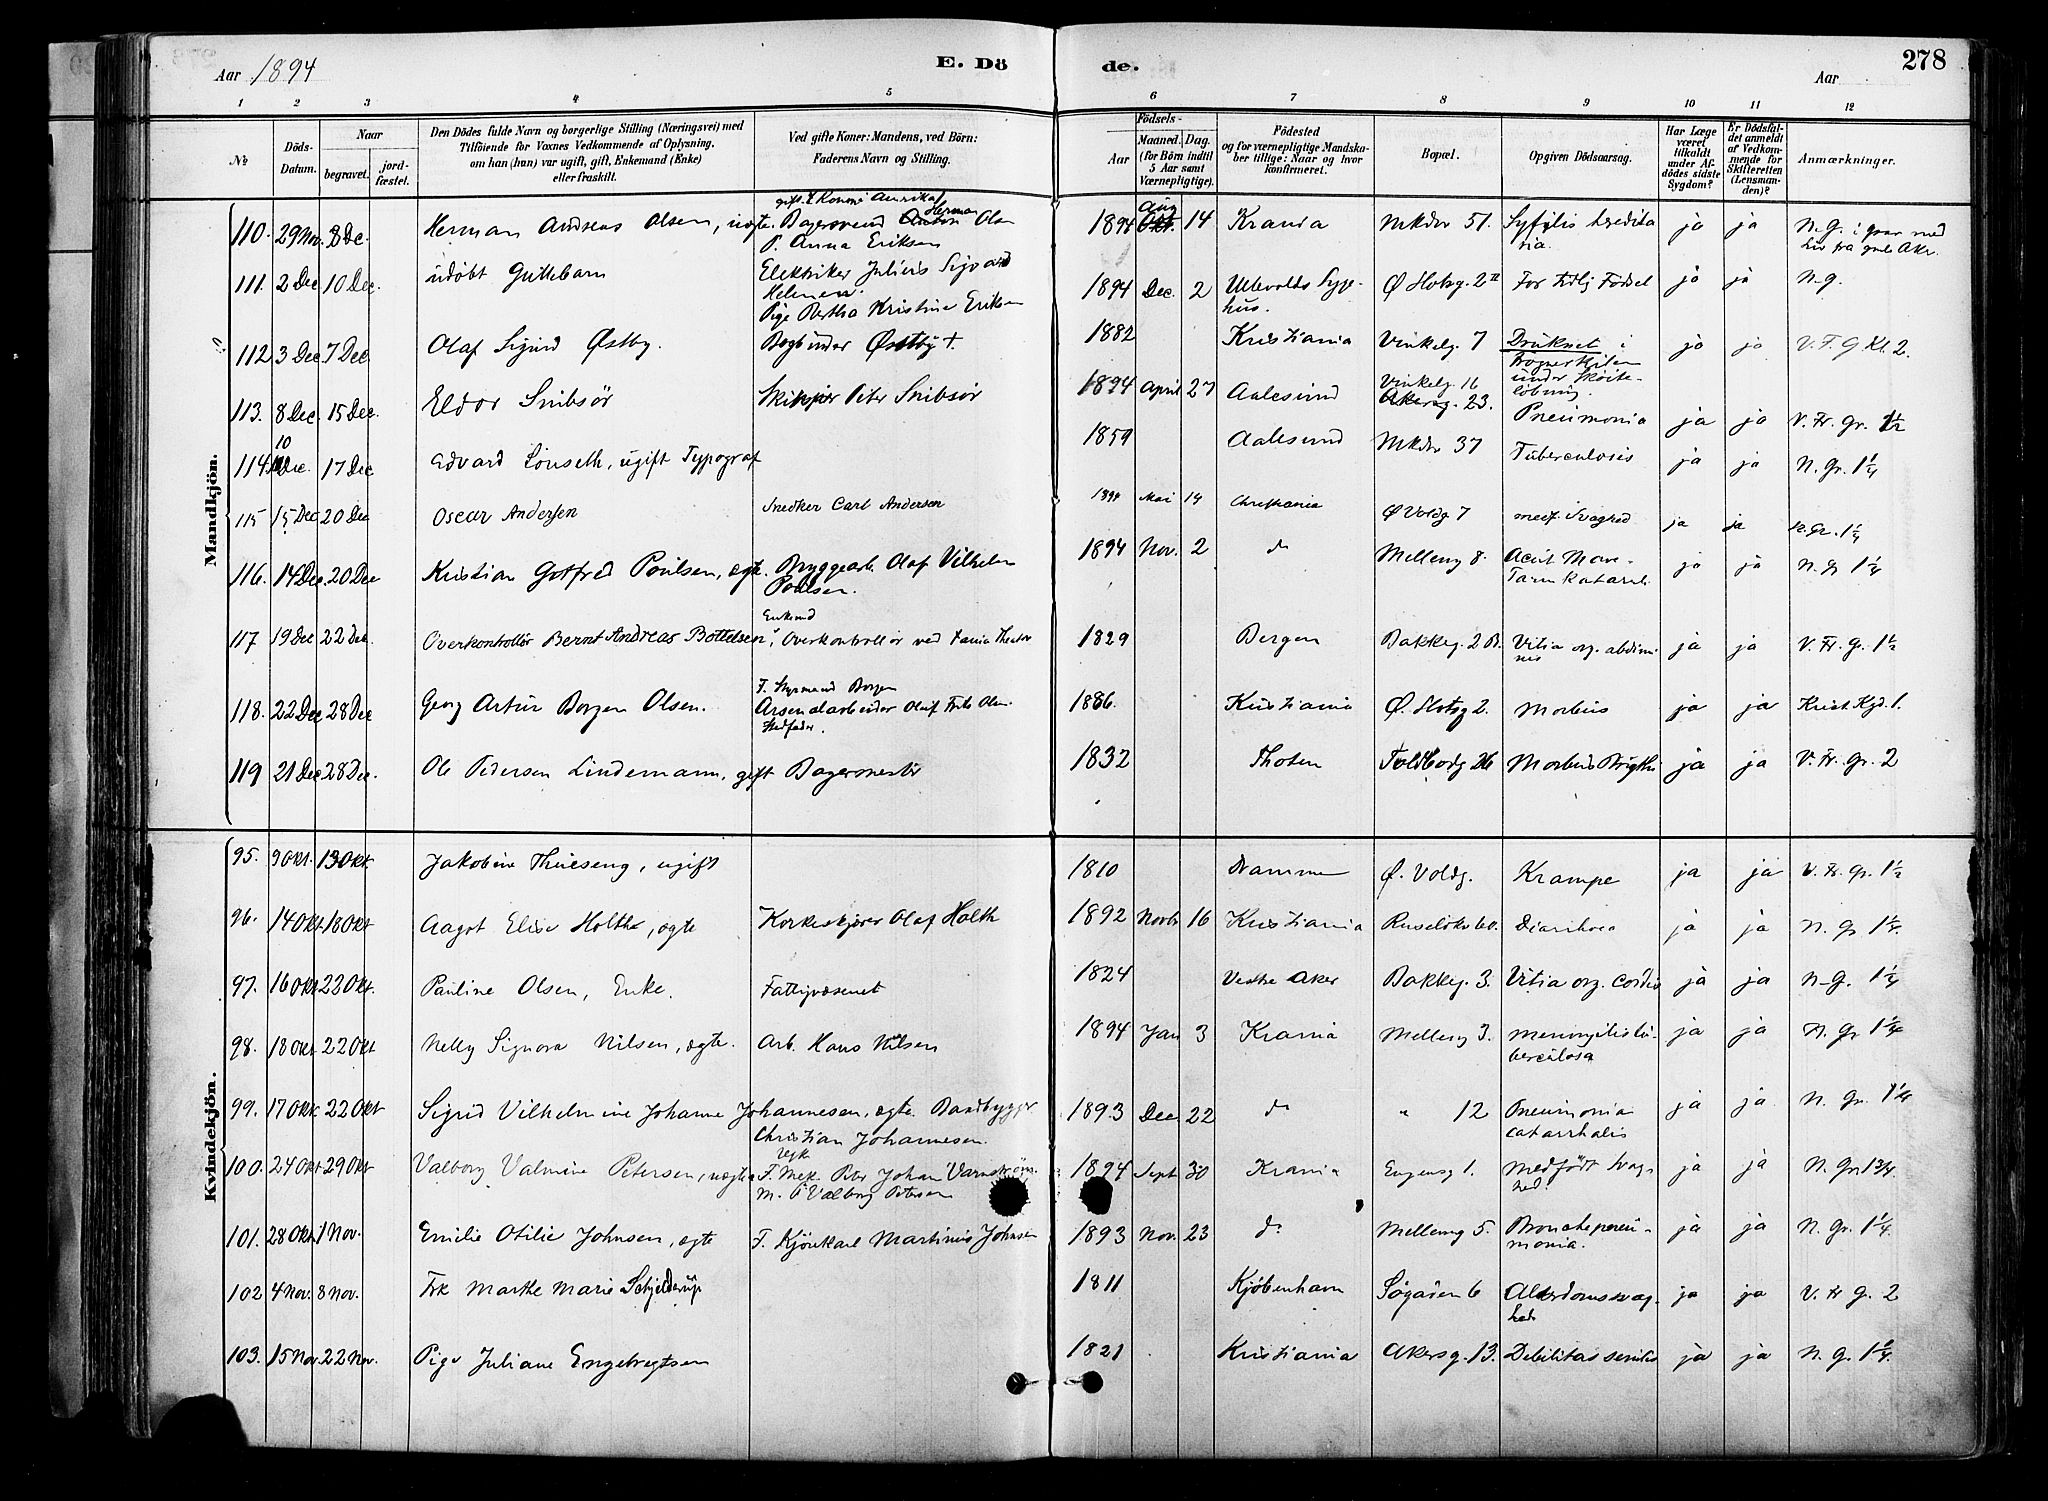 Aar 1894
E. Dö
de.
Aar
278
1 2 3 4 5 6 7 8 9 10 11 12
№
Döds-
Datum.
Naar
begravet.
jord-
fæstet.
Den Dödes fulde Navn og borgerlige Stilling (Næringsvei) med
Tilföiende for Voxnes Vedkommende af Oplysning,
om han (hun) var ugift, gift, Enkemand (Enke)
eller fraskilt.
Ved gifte Koner: Mandens, ved Börn:
Faderens Navn og Stilling.
Födsels-
Aar
Maaned. Dag.
(for Börn indtil
5 Aar samt
Værnepligtige).
Födested
og for værnepligtige Mandska-
ber tillige: Naar og hvor
konfirmeret.
Bopæl.
Opgiven Dödsaarsag.
Har Læge
været
tilkaldt
under Af-
dödes sidste
Sygdom?
Er Dödsfal-
det anmeldt
af Vedkom-
mende for
Skifteretten
(Lensman-
den)?
Anmærkninger.
Mandkjön.
110. 29 Nov. 8 De. Herman Andreas Olsen, uegte. Bagersvend Herman Olsen 1894 Aug 14 Krania Mkdr 51. Syfilis heredita ja ja N.G. i grav med
P. Anna Eriksen ria.
111. 2 Dec 10 Dec. udøbt Guttebarn Elektriker Julius Sigvard 1894 Dec. 2 Ullevolds Syge- Ø Slotsg. 2 II For tidlig Fødsel ja ja N.G.
Pige Bertha Kristine Eriksen hus.
112 3 Dec 7 Dec. Olaf Sigurd Østby. Bogbinder Østby +. 1882 Kristiania Vinkelg. 7 Druknet i ja ja V.F.G Kl. 2.
under Skøite-
løbning.
113. 8 Dec. 15 Dec. Eldor Snibsør Skipper Peter Snibsør 1894 April 27 Aalesund Vinkelg 16
Akersg. 23. Pneumonia ja ja V. Fr. Gr. 1½
114. 10 Dec. 17 Dec Edvard Lönseth, ugift Typograf 1859 Aalesund Mkdr 37 Tuberculosis ja ja N. Gr. 1¼
115 15 Dec 20 Dec Oscar Andersen Snedker Carl Andersen 1894 Mai 14 Christiania Ø Voldg 7 medf. Svaghed ja ja N. Gr. 1¼
116. 14 Dec. 20 Dec Kristian Gotfred Poulsen, ægte. Bryggearb. Olaf Vilhelm 1894 Nov. 2 do Mellemg 8. Acut Mave- ja ja N. Gr 1¼
Poulsen. Tarmkatarrh.
117. 19 Dec 22 Dec. Overkontrollør Bernt Andreas Bottelsen, Enkemd Overkontrollør ved Tania Theater 1829 Bergen Bakkeg. 2 B. Vitia org. abdomi- ja ja V. Fr. G. 1½
nis
118. 22 Dec 28 Dec Georg Artur Borgen Olsen. F. Styrmand Borgen
Arsenalarbeider Olaf Frits Olsen 1886. Kristiania Ø. Slotsg 2. Morbus ja ja Krist Kgd. 1.
Stedfader.
119 21 Dec 28 Dec. Ole Pedersen Lindemann, gift Bagermester 1832 Thoten Toldbodg 26 Morbus Brigthi ja ja V. Fr. Gr. 2
Kvindekjön.
95. 9 Okt. 13 Okt. Jakobine Thueseng, ugift 1810 Drammen Ø. Voldg. Krampe ja ja V. Fr. Gr. 1½
96. 14 Okt. 18 Okt Aagot Elise Holthe, ægte Korkeskjærer Olaf Holth 1892 Novbr 16 Kristiania Ruseløkv 60. Diarrhoea ja ja N. Gr 1¼.
97. 16 Okt 23 Okt. Pauline Olsen, Enke. Fattigvæsenet 1824 Vestre Aker Bakkeg. 3. Vitia org. cordis ja ja N.G. 1¼
98. 18 Okt 22 Okt Nelly Signora Nilsen, ægte. Arb. Hans Nilsen 1894 Jan 3 Krania Mellemg 3. meningitis tu- ja ja N. Gr 1¼
berculosa
99. 17 Okt. 22 Okt Sigrid Vilhelmine Johanne Johannesen, ægte. Baadbygger 1893 Dec. 22 do " 12 Pneumonia ja ja. N. Gr. 1¼
Christian Johannesen. catarrhalis
100. 24 Okt 29 Okt Valborg Valmine Petersen, uægte F. Mek. Peter Johan Varnstrøm. 1894 Sept 30 Krania Eugensg 1. Medfødt Svag- ja ja N. Gr 1¾.
M. P Valborg Petersen hed.
101. 28 Okt. 1 Nov. Emilie Otilie Johnsen, ægte F. Kjørekarl Martinius Johnsen 1893 Nov. 23 do Mellemg 5. Bronchopneu- ja ja N. Gr. 1¼
monia.
102 4 Nov. 8 Nov. Frk Marthe Marie Schjelderup 1811 Kjøbenhavn Søgaden 6 Alderdomssvag- ja ja V. Fr G. 2
hed
103. 15 Nov. 22 Nov. Pige Juliane Engebregtsen 1821 Kristiania Akersg. 13. Debilitas senilis ja ja N. G. 1¼.